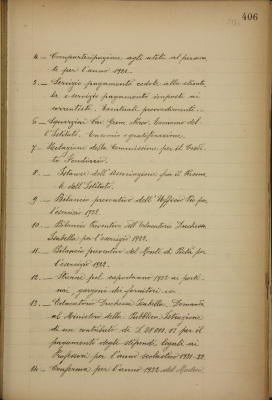 406
4.— Compartecipazione agli utili al persona-
le per l'anno 1921.
5.— Servizio pagamento cedole alla clientela
e servizio pagamento imposte ai
correntisti. Eventuali provvedimenti.—
6.— Cav. Geom. Economo del-
l'Istituto. Encomio e gratificazione.
7.— Relazione della Commissione per il Credi-
to Fondiario.
8.— dell'Associazione fra il Persona-
le dell'Istituto.
9.— Bilancio preventivo dell'Ufficio Pio per
l'esercizio 1922.
10.— Bilancio Preventivo dell'Educatorio Duchessa
Isabella per l'esercizio 1922.
11.— Bilancio preventivo del Monte di Pietà per
l'esercizio 1922.
12.— Strenne pel capodanno 1922 ai porti-
nai, garzoni dei fornitori ecc.
13.— Educatorio Duchessa Isabella. Domanda
al Ministero della Pubblica Istruzione
di un contributo di L. per il
pagamento degli stipendi legali ai
Professori per l'anno scolastico 1921-22.
14.— Conferma per l'anno 1922 del